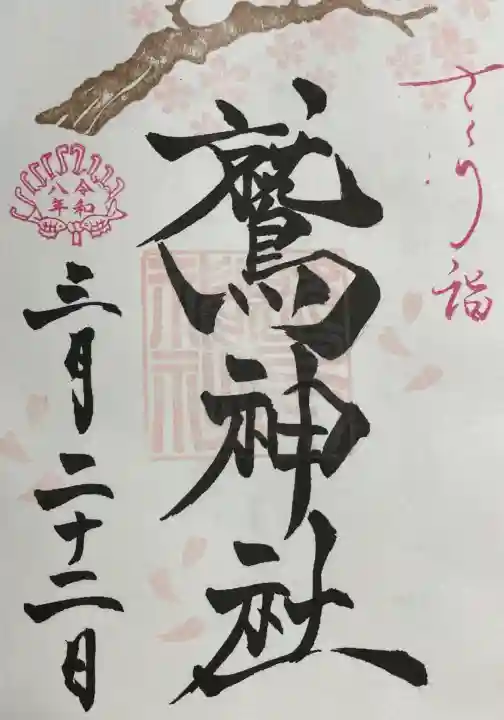 さくら詣
鷲神社
令和
八年
三月二十二日